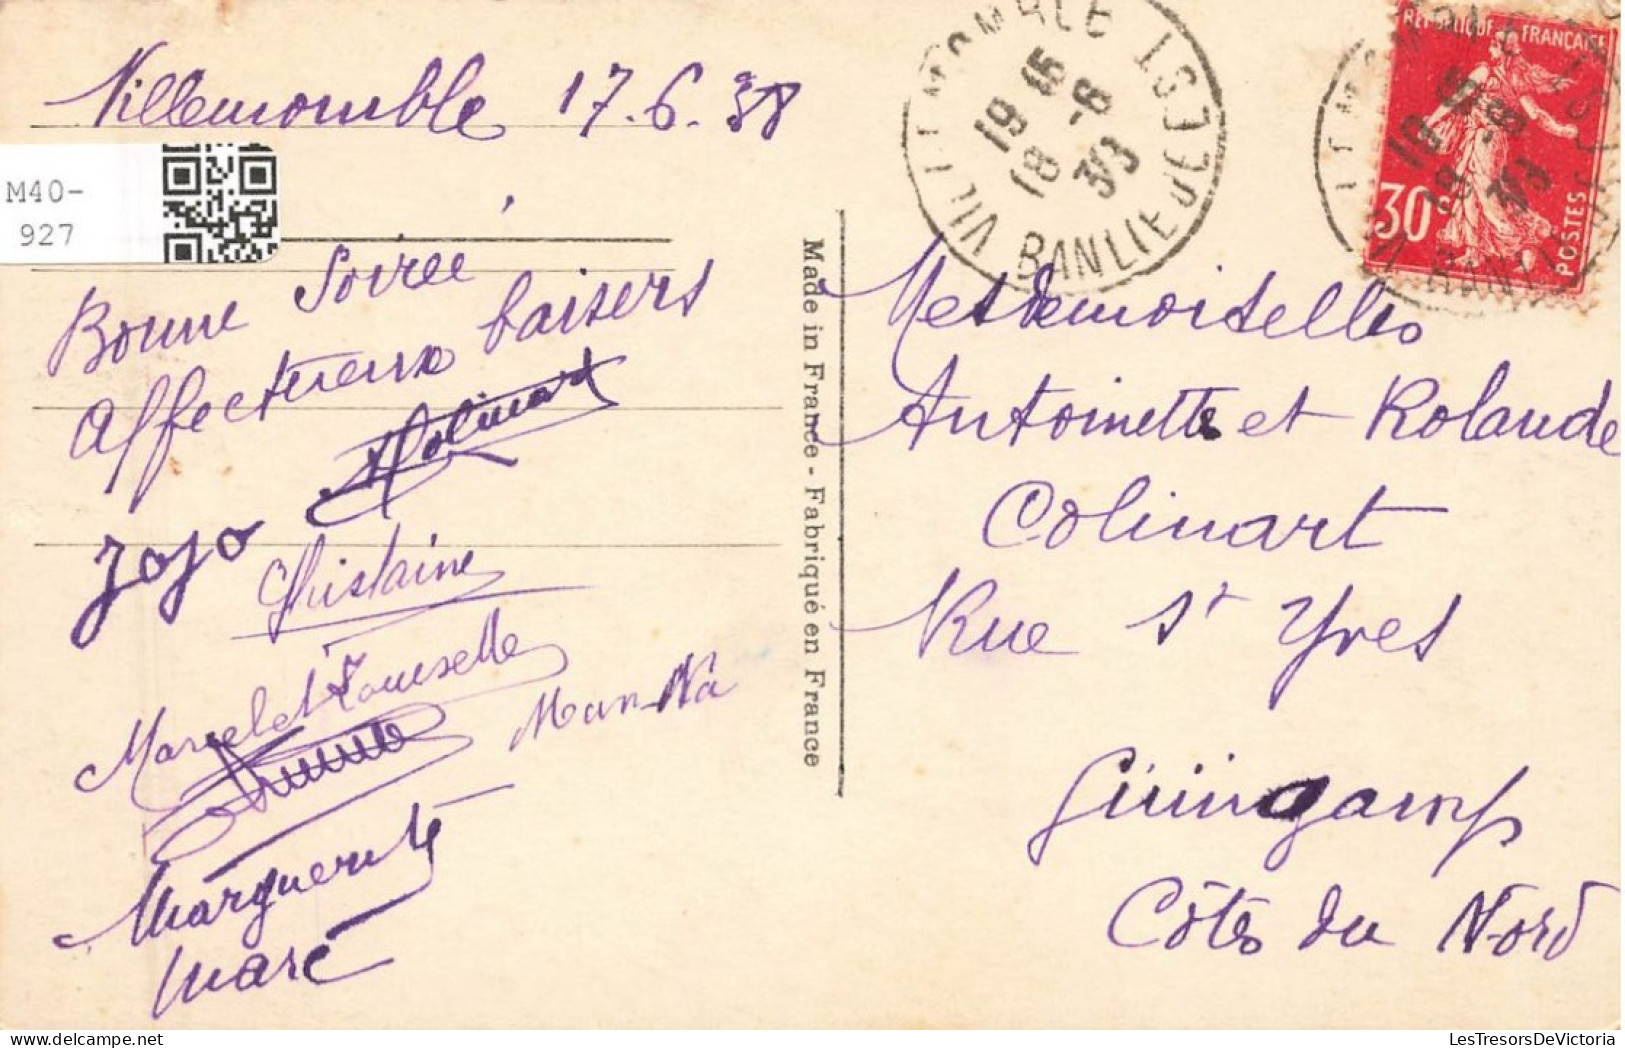 Villemomble 17.6.38
M40-
927
Bonne Soirée
Affectueux baisers
Colinart
Jojo
Ghislaine
Marcel et
Man-Na
Marguerite
Marc
Made in France - Fabriqué en France
VILLEMOMBLE
19 15
18 -6
BANLIEUE EST
REPUBLIQUE FRANÇAISE
30c
POSTES
Mesdemoiselles
Antoinette et Rolande
Colinart
Rue St Yves
Guingamp
Côtes du Nord
LesTresorsDeVictoria